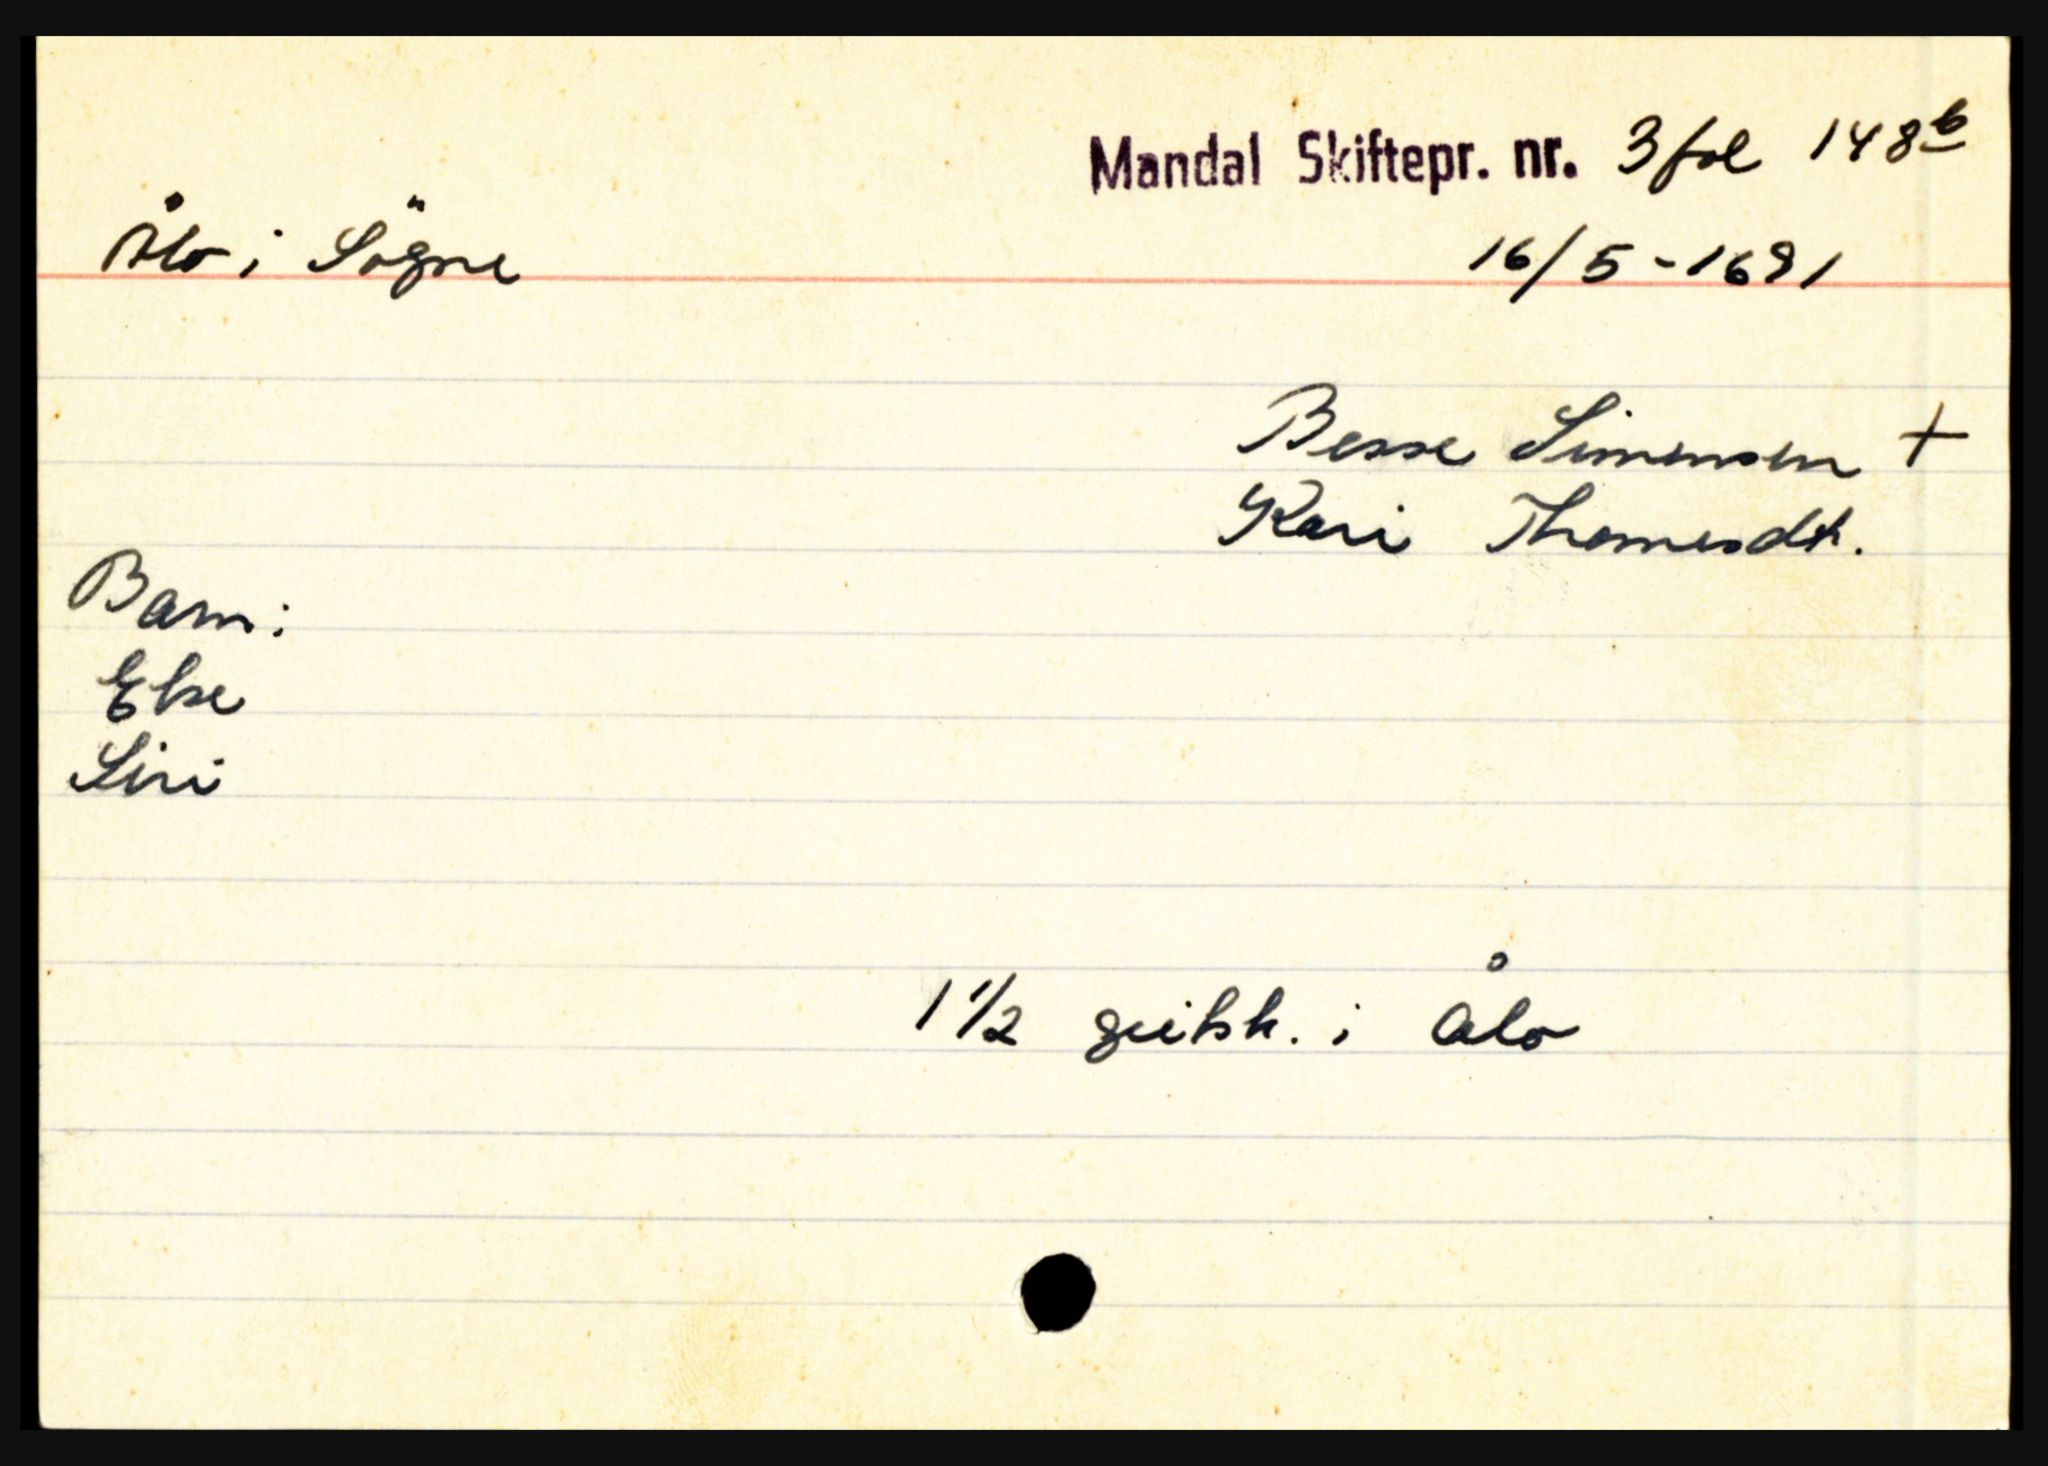 Mandal Skiftepr. nr. 3 fol 148b
Ålo i Sögne
16/5-1691
Besse Simensen +
Kari Thomesdt.
Barn:
Else
Siri
1 1/2 geitsk. i Ålo